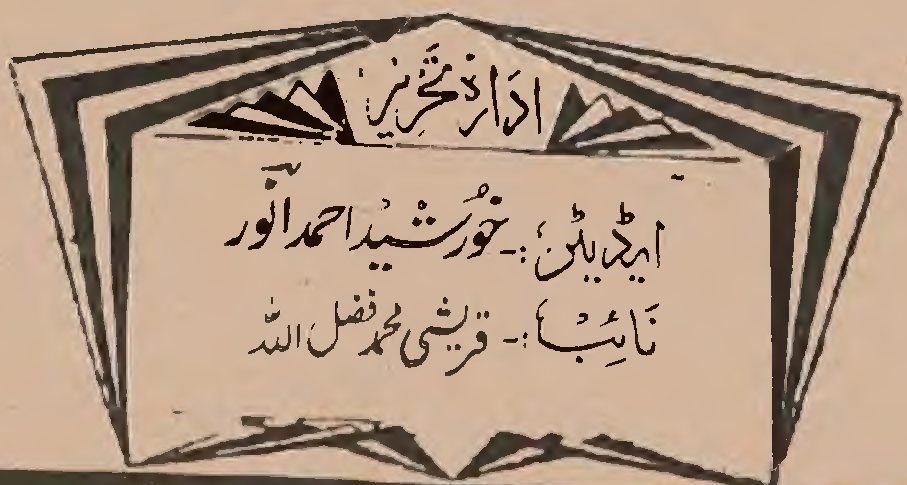 ادارۂ تحریر
ایڈیٹر:- خورشید احمد انور
نائب:- قریشی محمد فضل اللہ